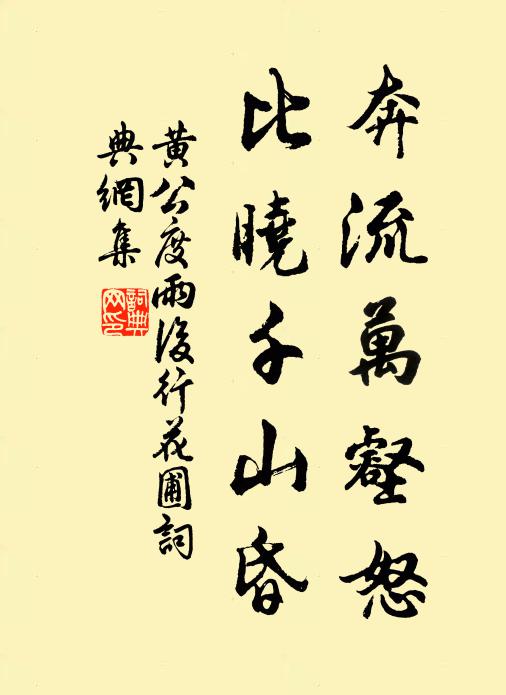 奔流萬壑怒
比曉千山昏
黃公度雨後行花圃詞
典網集
詞典
网印